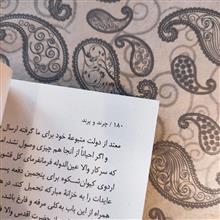 ۱۸۰ / چرند و پرند
معتد از دولت متبوعهٔ خود برای ما گرفته ارسال
و اگر احیاناً از آنجا هم چیزی وصول نشد، لا
که سرکار والا عین‌الدوله فرمانفرمای کل قشو
اردوی کیوان‌شکوه برای پنجمین دفعه پس
عایدات را به خزانهٔ مبارکه تحمیل کند.
همراه از این باب به‌کلی مرفه و فارغ باشد،
حضرت اقدس والا